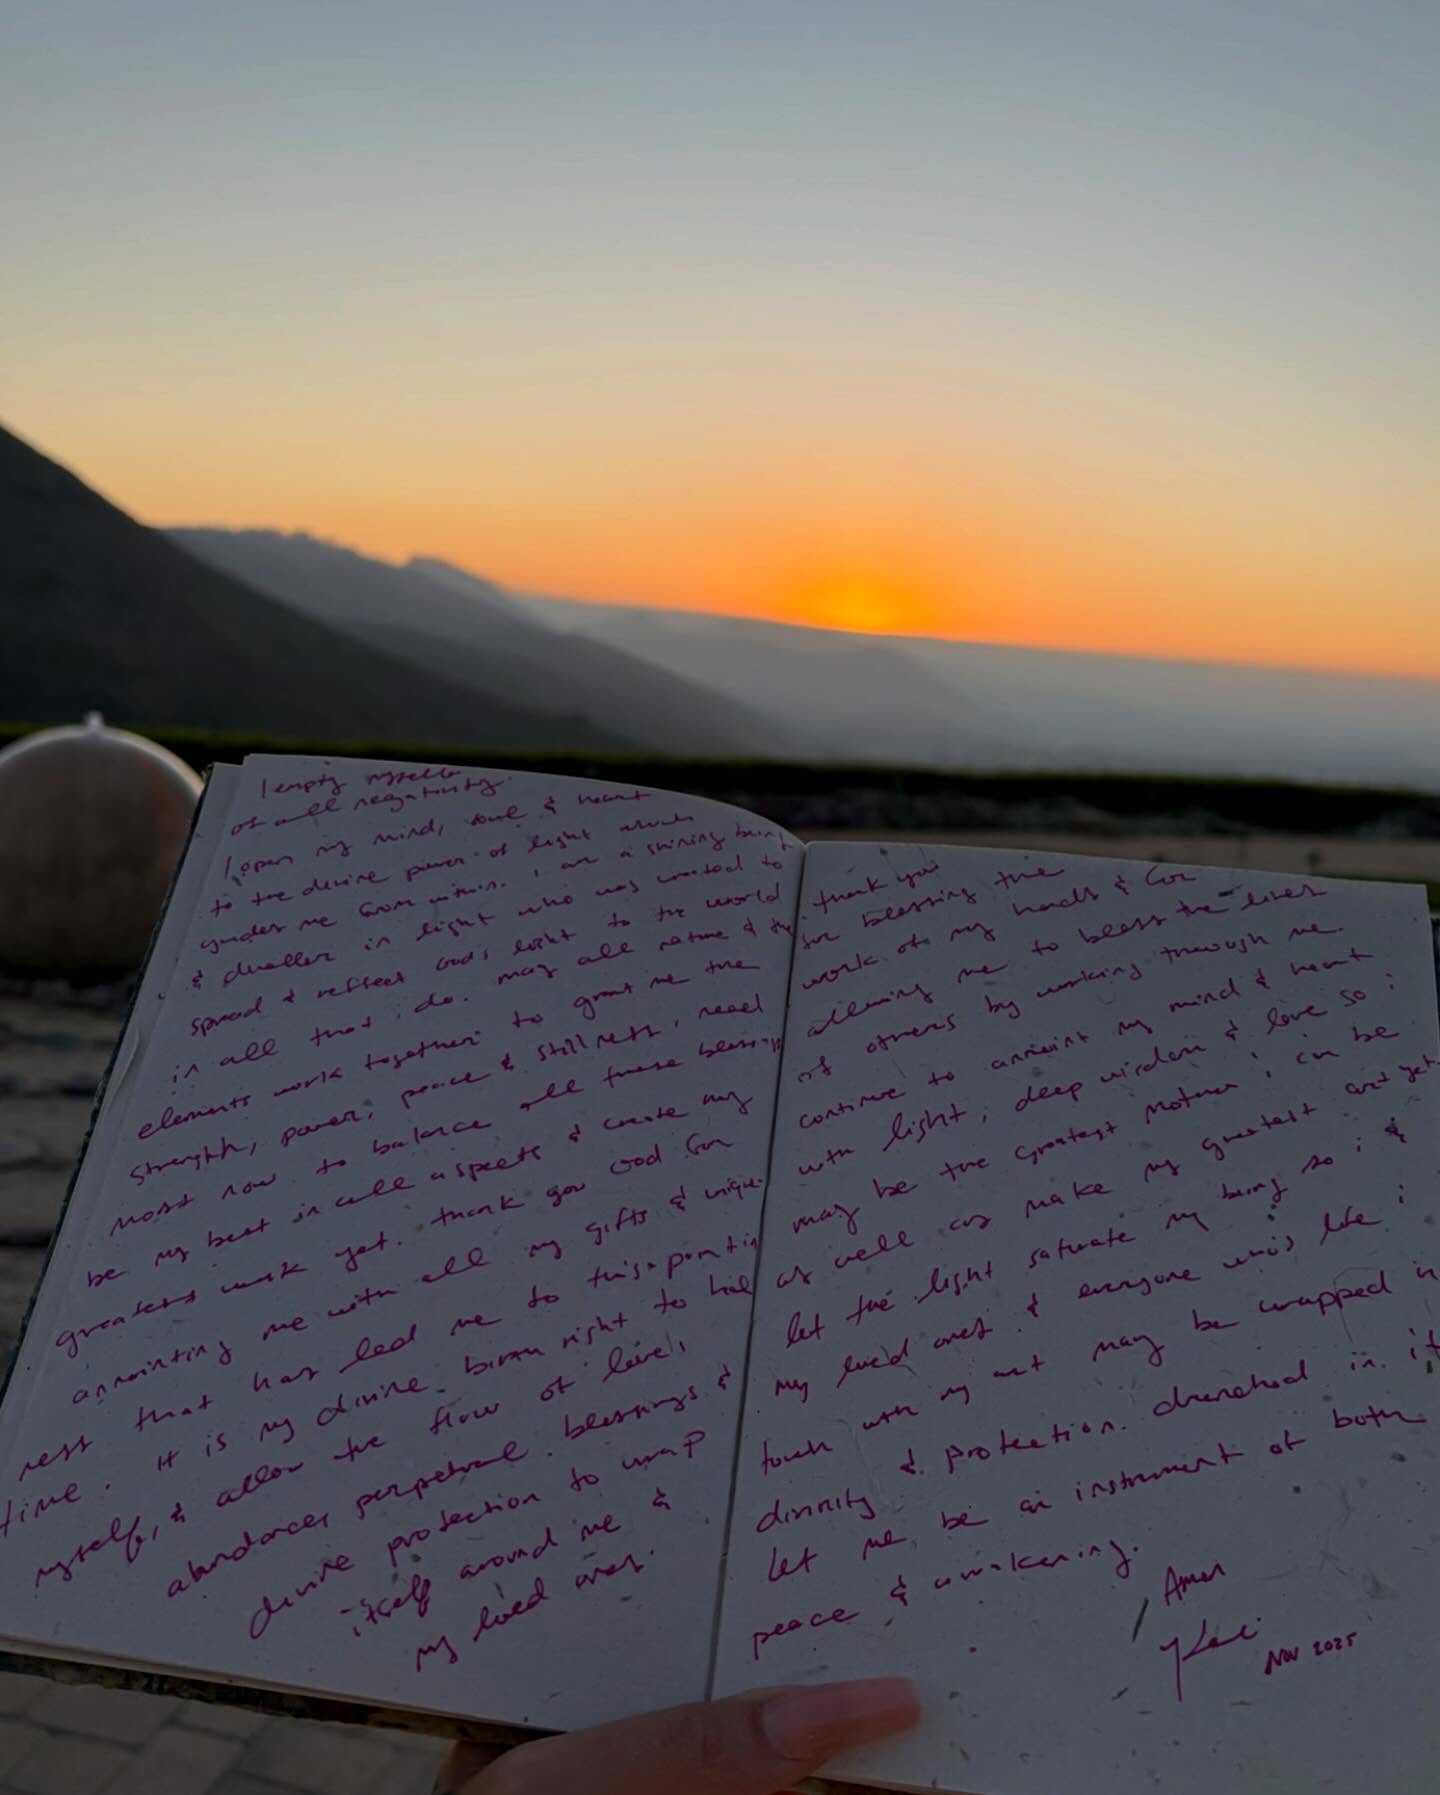 I empty myself
of all negativity.
I open my mind, soul & heart
to the divine power of light which
guides me from within. I am a shining being
& dweller in light who was created to
spread & reflect God's light to the world
in all that i do. may all nature & the
elements work together to grant me the
strength, power, peace & stillness i need
most now to balance all these blessings
be my best in all aspects & create my
greatest work yet. thank you God for
annointing me with all my gifts & unique-
ness that has led me to this point in
time. It is my divine birth right to heal
myself, & allow the flow of love,
abundance, perpetual blessings &
divine protection to wrap
itself around me &
my loved ones.
thank you
for blessing the
work of my hands & for
allowing me to bless the lives
of others by working through me.
continue to annoint my mind & heart
with light, deep wisdom & love so i
may be the greatest mother i can be
as well as make my greatest art yet
let the light saturate my being so i &
my loved ones & everyone who's life i
touch with my art may be wrapped in
divinity & protection. drenched in it
let me be an instrument of both
peace & awakening.
Amen
Nov 2025